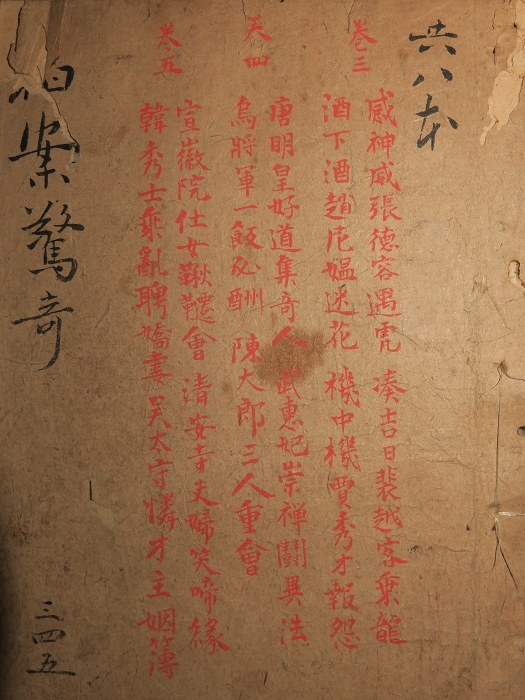 共八本
卷三
感神威張德容遇虎 湊吉日裴越客乘龍
酒下酒趙尼媼迷花 機中機賈秀才報怨
卷四
唐明皇好道集奇人 武惠妃崇禪鬪異法
烏將軍一飯必酬 陳大郎三人重會
卷五
宣徽院仕女鞦韆會 清安寺夫婦笑啼緣
韓秀士乘亂聘嬌妻 吴太守憐才主姻簿
拍案驚奇
三四五